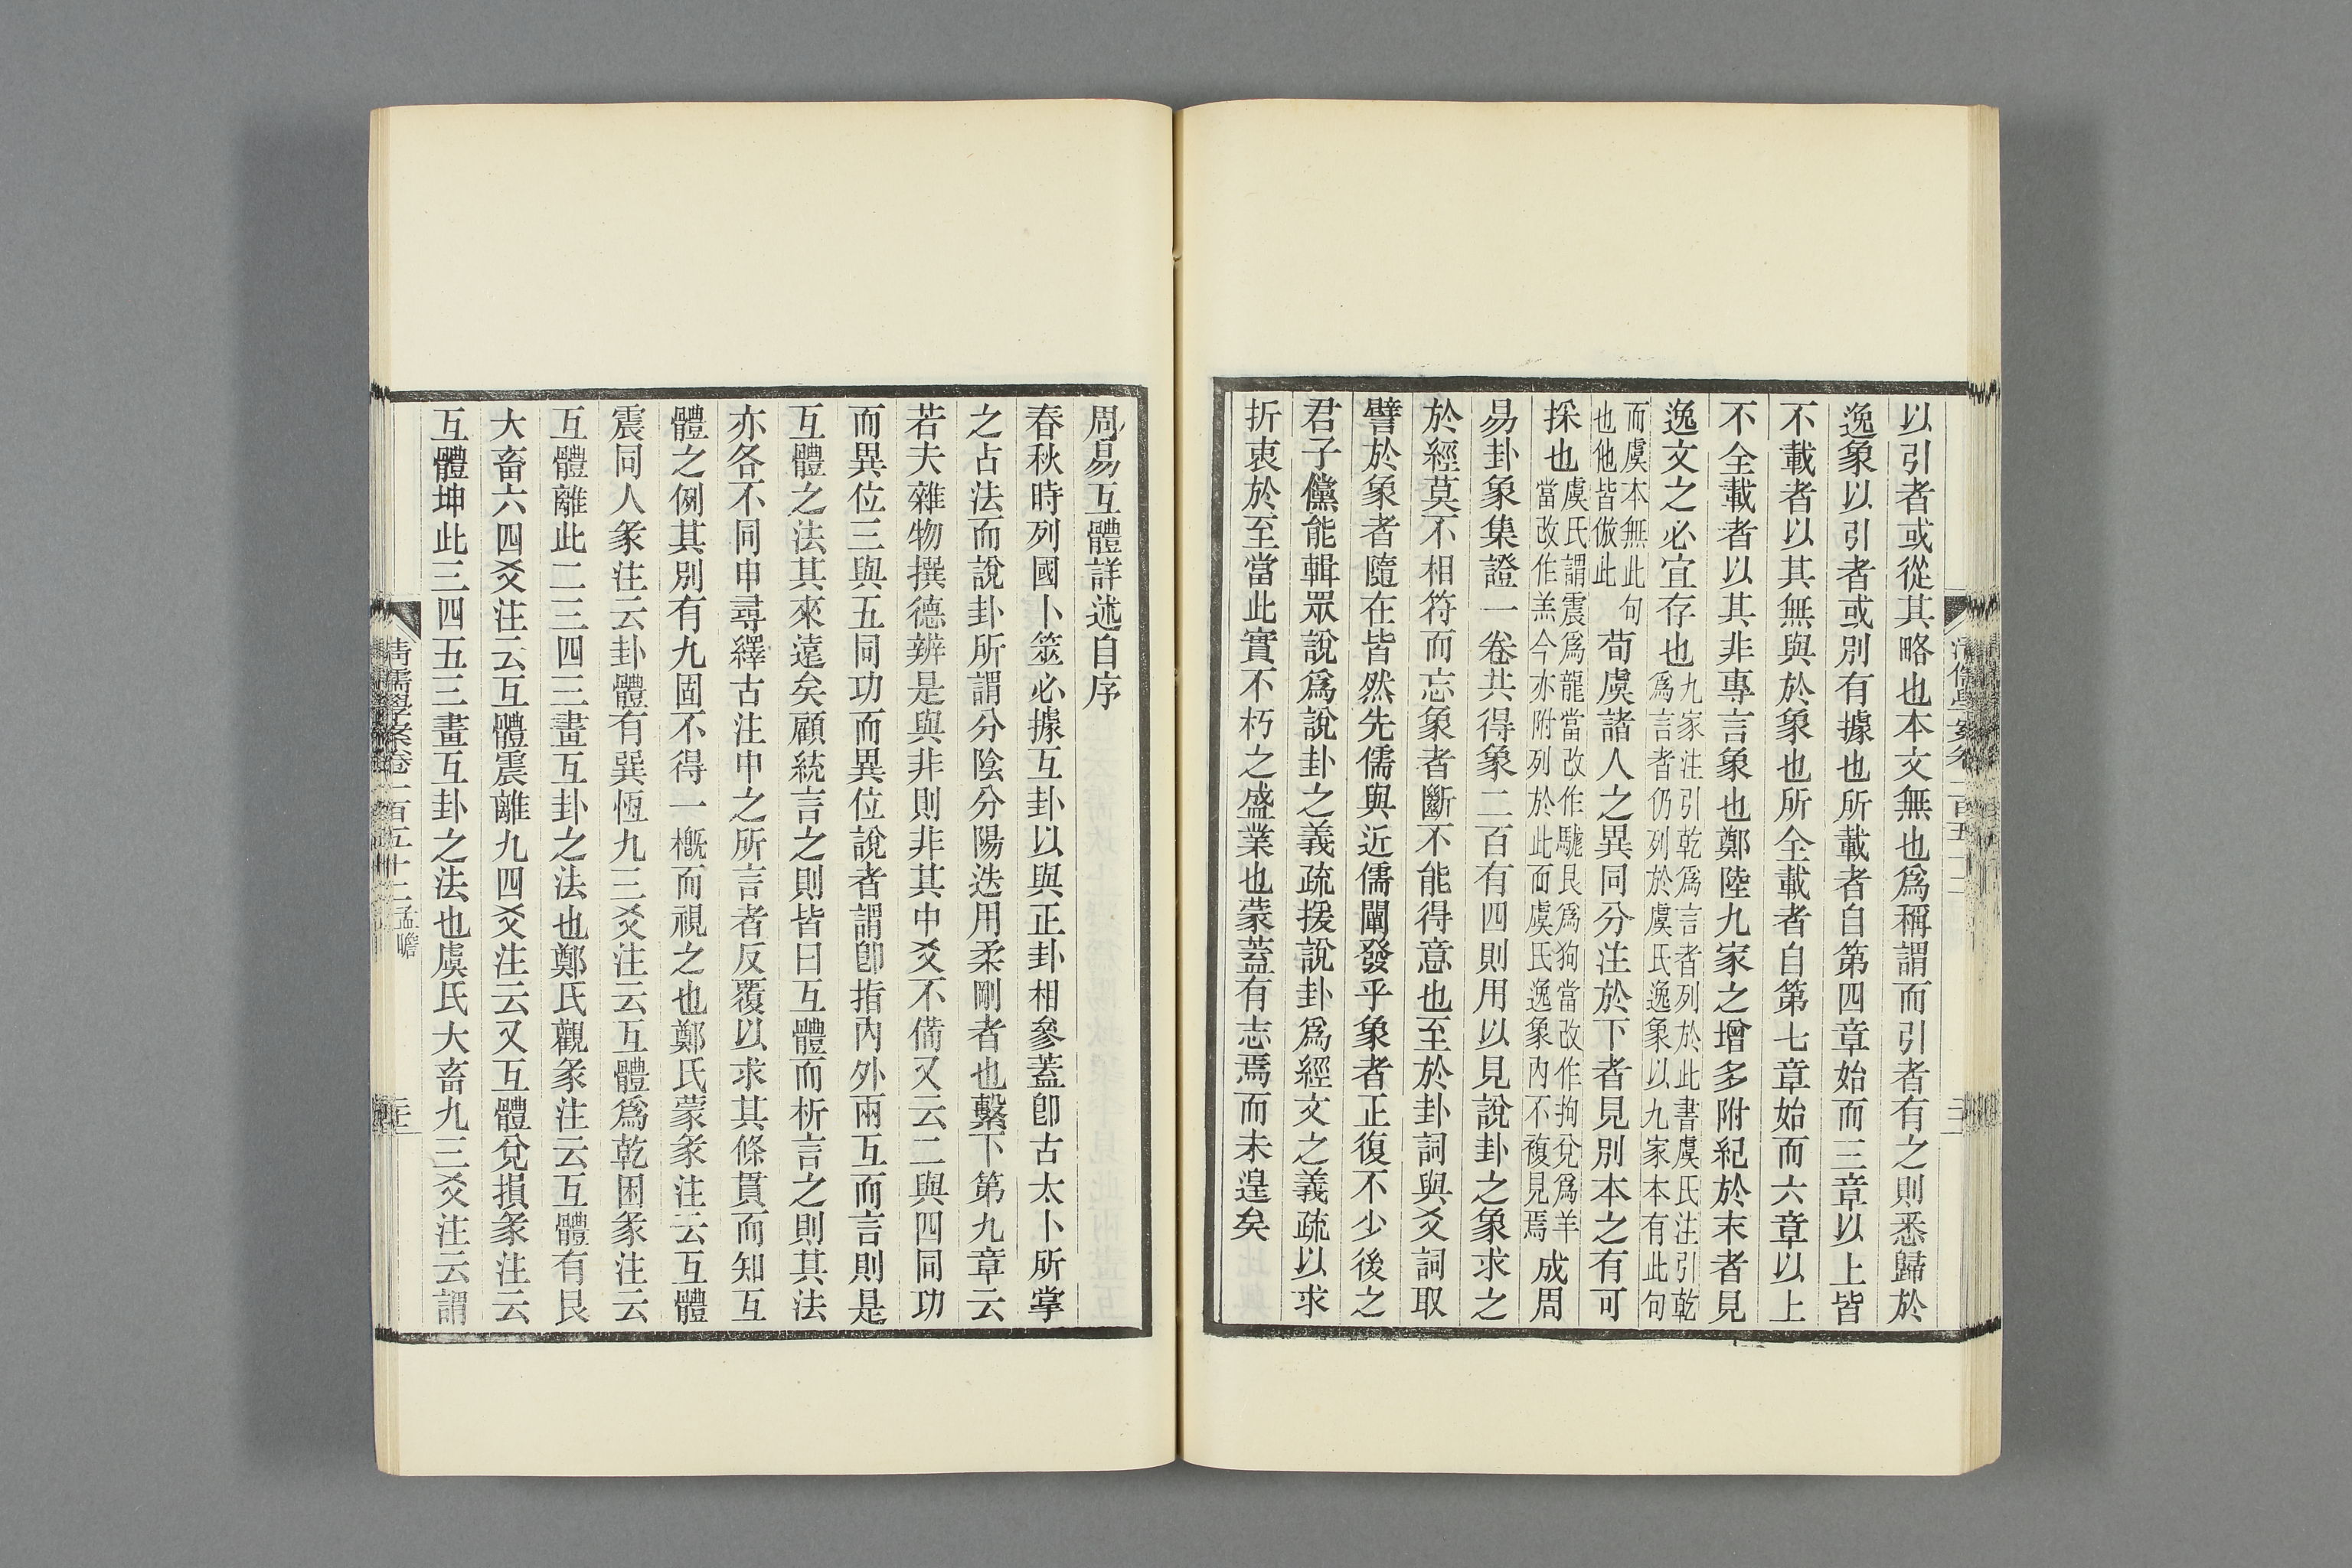 以引者或從其略也本文無也爲稱謂而引者有之則悉歸於
逸象以引者或別有據也所載者自第四章始而三章以上皆
不載者以其無與於象也所全載者自第七章始而六章以上
不全載者以其非專言象也鄭陸九家之增多附紀於末者見
逸文之必宜存也九家注引乾爲言者列於此書虞氏注引乾
爲言者仍列於虞氏逸象以九家本有此句
而虞本無此句
也他皆倣此荀虞諸人之異同分注於下者見別本之有可
採也虞氏謂震爲龍當改作駹艮爲狗當改作拘兌爲羊
當改作羔今亦附列於此而虞氏逸象內不複見焉成周
易卦象集證一卷共得象二百有四則用以見說卦之象求之
於經莫不相符而忘象者斷不能得意也至於卦詞與爻詞取
譬於象者隨在皆然先儒與近儒闡發乎象者正復不少後之
君子儻能輯眾說爲說卦之義疏援說卦爲經文之義疏以求
折衷於至當此實不朽之盛業也蒙蓋有志焉而未遑矣
周易互體詳述自序
春秋時列國卜筮必據互卦以與正卦相參蓋卽古太卜所掌
之占法而說卦所謂分陰分陽迭用柔剛者也繫下第九章云
若夫雜物撰德辨是與非則非其中爻不備又云二與四同功
而異位三與五同功而異位說者謂卽指內外兩互而言則是
互體之法其來遠矣顧統言之則皆曰互體而析言之則其法
亦各不同申尋繹古注申之所言者反覆以求其條貫而知互
體之例其別有九固不得一概而視之也鄭氏蒙彖注云互體
震同人彖注云卦體有巽恆九三爻注云互體爲乾困彖注云
互體離此二三四三畫互卦之法也鄭氏觀彖注云互體有艮
大畜六四爻注云互體震離九四爻注云又互體兌損彖注云
互體坤此三四五三畫互卦之法也虞氏大畜九三爻注云謂
清儒學案卷一百五十二 孟瞻